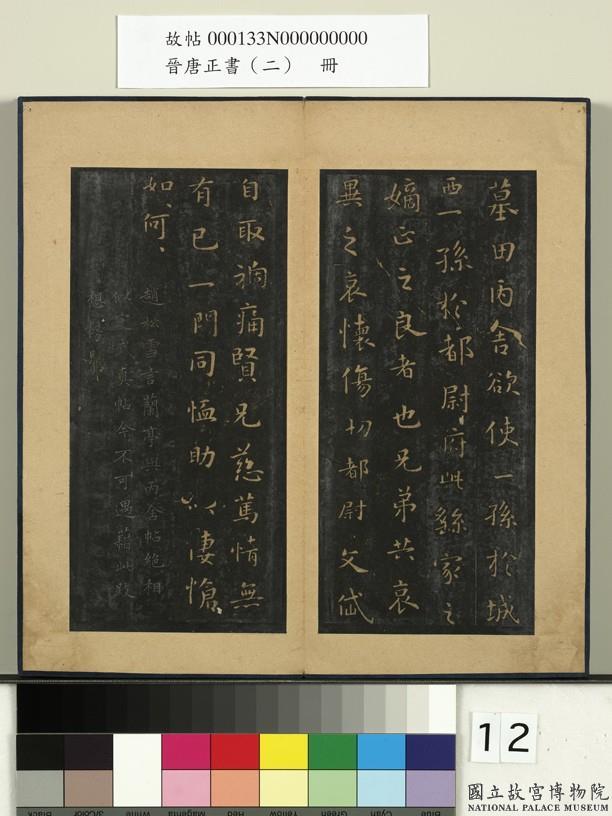 故帖 000133N000000000
晉唐正書（二） 冊
墓田丙舍欲使一孫於城
西一孫於都尉府此繇家之
嫡正之良者也兄弟共哀
異之哀懷傷切都尉文岱
自取禍痛賢兄慈篤情無
有已一門同恤助以悽愴
如何、
趙松雪言蘭亭與丙舍帖絕相
似
真帖今不可遇藉此
12
國立故宮博物院
NATIONAL PALACE MUSEUM
Black
3/Color
White
Magenta
Red
Yellow
Green
Cyan
Blue